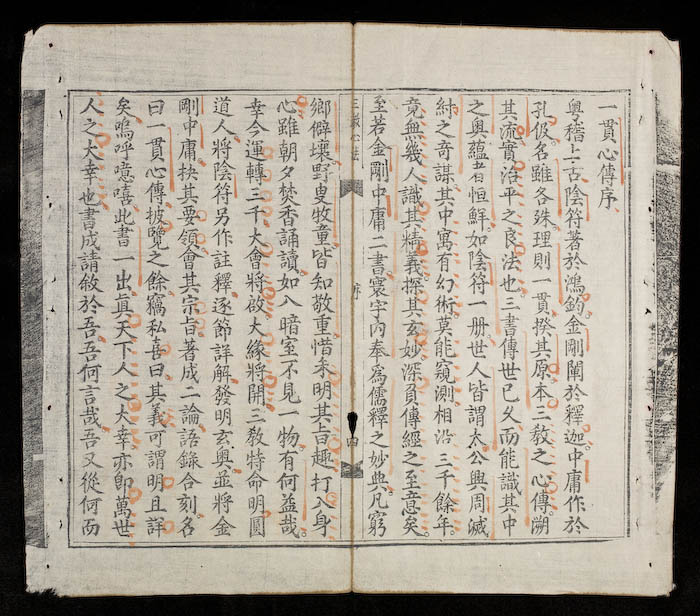 一貫心傳序
粵稽上古陰符著於鴻鈞金剛闡於釋迦中庸作於
孔伋名雖各殊理則一貫揆其原本三教之心傳溯
其流實治平之良法也三書傳世已久而能識其中
之奧蘊者恒鮮如陰符一册世人皆謂太公興周滅
紂之奇謀其中寓有幻術莫能窺測相沿三千餘年
竟無幾人識其精義探其玄妙深負傳經之至意矣
至若金剛中庸二書寰宇内奉爲儒釋之妙典凡窮
三教心法
序
四
鄉僻壤野叟牧童皆知敬重惜未明其旨趣打入身
心雖朝夕焚香誦讀如入暗室不見一物有何益哉
幸今運轉三千大會將啟大緣將開三教特命明圓
道人將陰符另作註釋逐節詳解發明玄奥並將金
剛中庸抉其要領會其宗旨著成一論語錄合刻名
曰一貫心傳披覽之餘竊私喜曰其義可謂明且詳
矣嗚呼噫嘻此書一出眞天下人之大幸亦卽萬世
人之大幸也書成請敘於吾吾何言哉吾又從何而